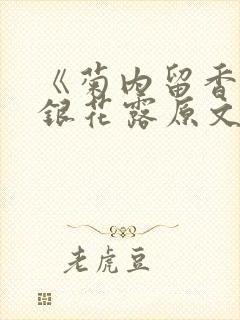 《菊内留香
銀花露原文
老虎豆